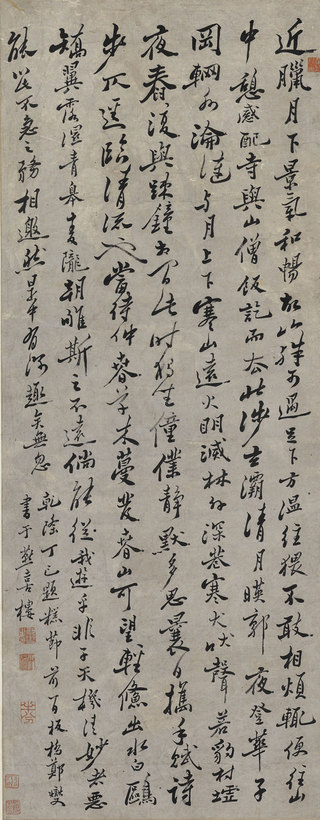 近臘月下景氣和暢故山殊可過足下方溫經猥不敢相煩輒便往山
中憩感配寺與山僧飯訖而去北涉玄灞清月暎郭夜登華子
岡輞水淪漣與月上下寒山遠火明滅林外深巷寒犬吠聲若豹村墟
夜舂復與疎鐘相間此時獨坐僮僕靜默多思曩日攜手賦詩
步仄逕臨清流也當待仲春草木蔓發春山可望輕鯈出水白鷗
矯翼露濕青皋麥隴朝雊斯之不遠倘能從我遊乎非子天機清妙者惡
能以此不急之務相邀然是中有深趣矣無忽
乾隆丁巳題糕節前一日板橋鄭燮
書于燕喜樓